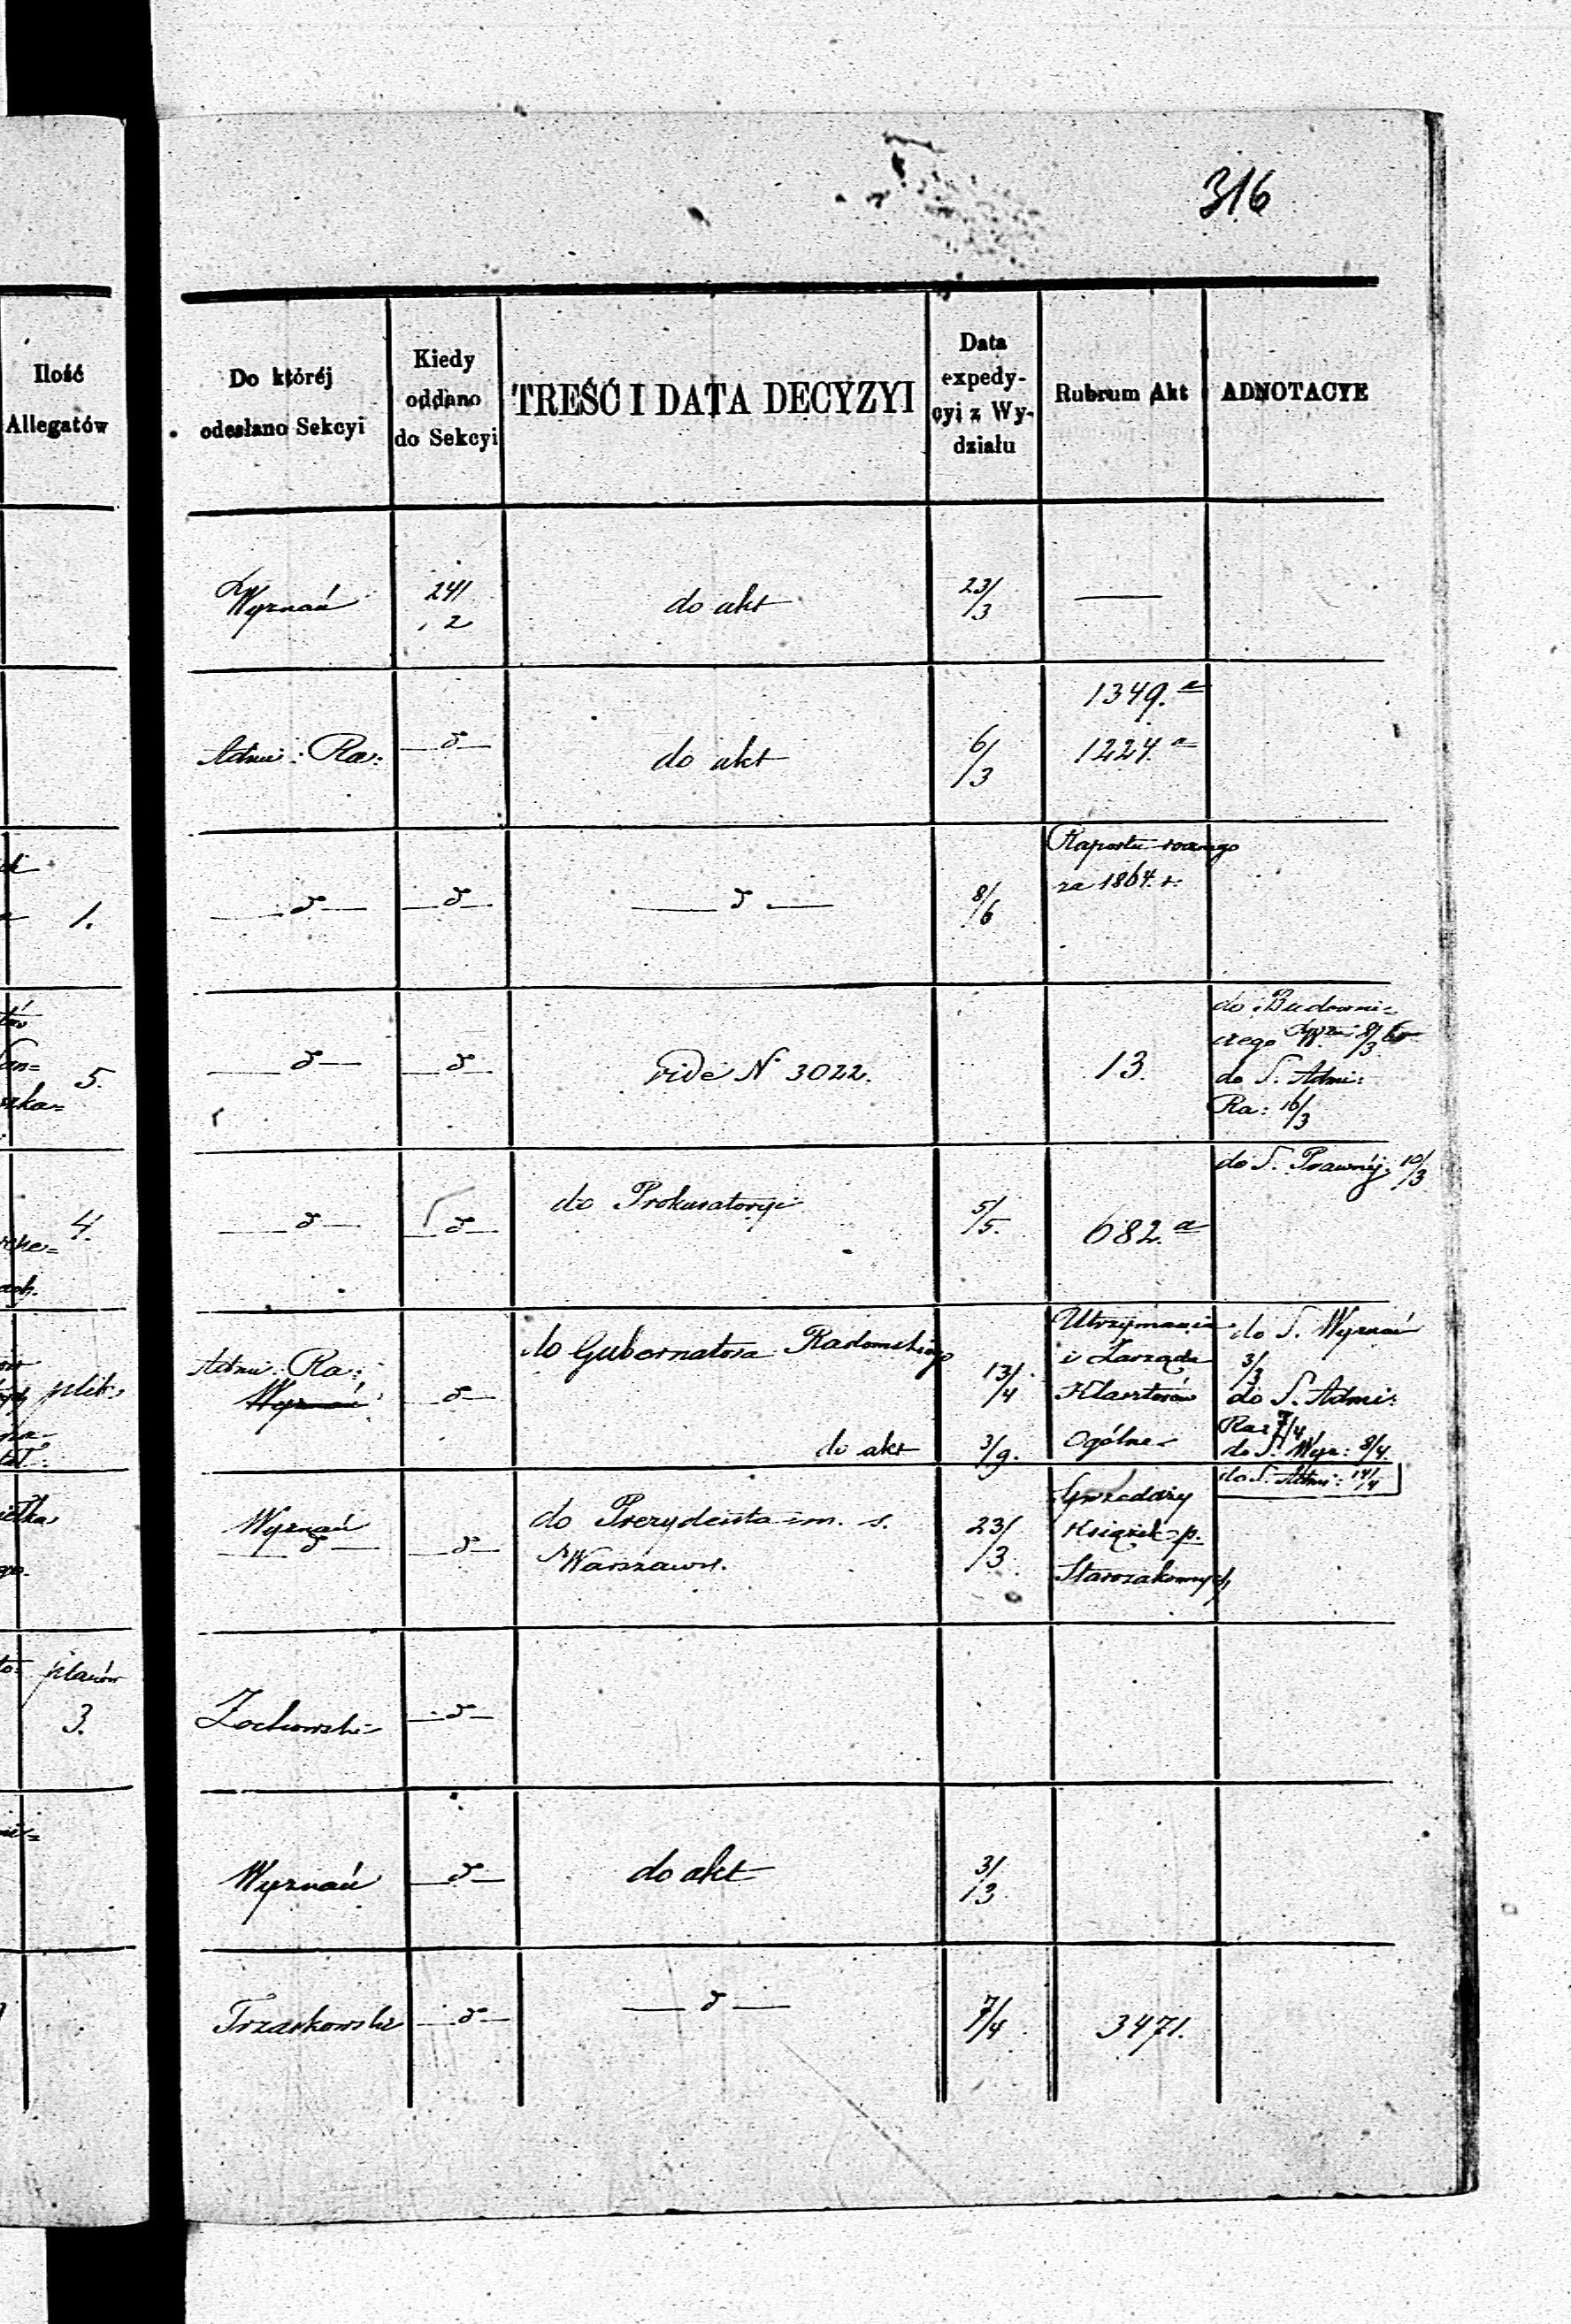 316
Ilość
Allegatów
Do któréj
odesłano Sekcyi
Kiedy
oddano
do Sekcyi
TREŚĆ I DATA DECYZYI
Data
expedy-
cyi z Wy-
działu
Rubrum Akt
ADNOTACYE
Wyznań
24/2
do akt
23/3
—
Admi: Ra:
—d—
do akt
6/3
1349.a
1224.a
1.
—d—
—d—
—d—
8/6
Raportu
za 1864 r.
5.
—d—
—d—
vide N 3022.
13.
do Budowni-
czego 8/3
do S. Admi:
Ra: 16/3
4.
—d—
—d—
do Prokuratoryi
5/5.
682.a
do S. Prawnéj 10/3
plik
Admi: Ra:
Wyznań
—d—
do Gubernatora Radomskiego
13/4
do akt
3/9.
Utrzymania
i Zarządu
Klasztorów
Ogólne
do S. Wyznań
3/3
do S. Admi:
Ra: 7/4
do S. Wyz: 8/4.
do S. Admi: 14/4
Wyznań
—d—
—d—
do Prezydenta m. s.
Warszawy.
23/3
Sprzedaży
Książek p.
Starozakonnych
planów
3.
Żochowski
—d—
Wyznań
—d—
do akt
3/13
Trzaskowski
—d—
—d—
7/4
3471.